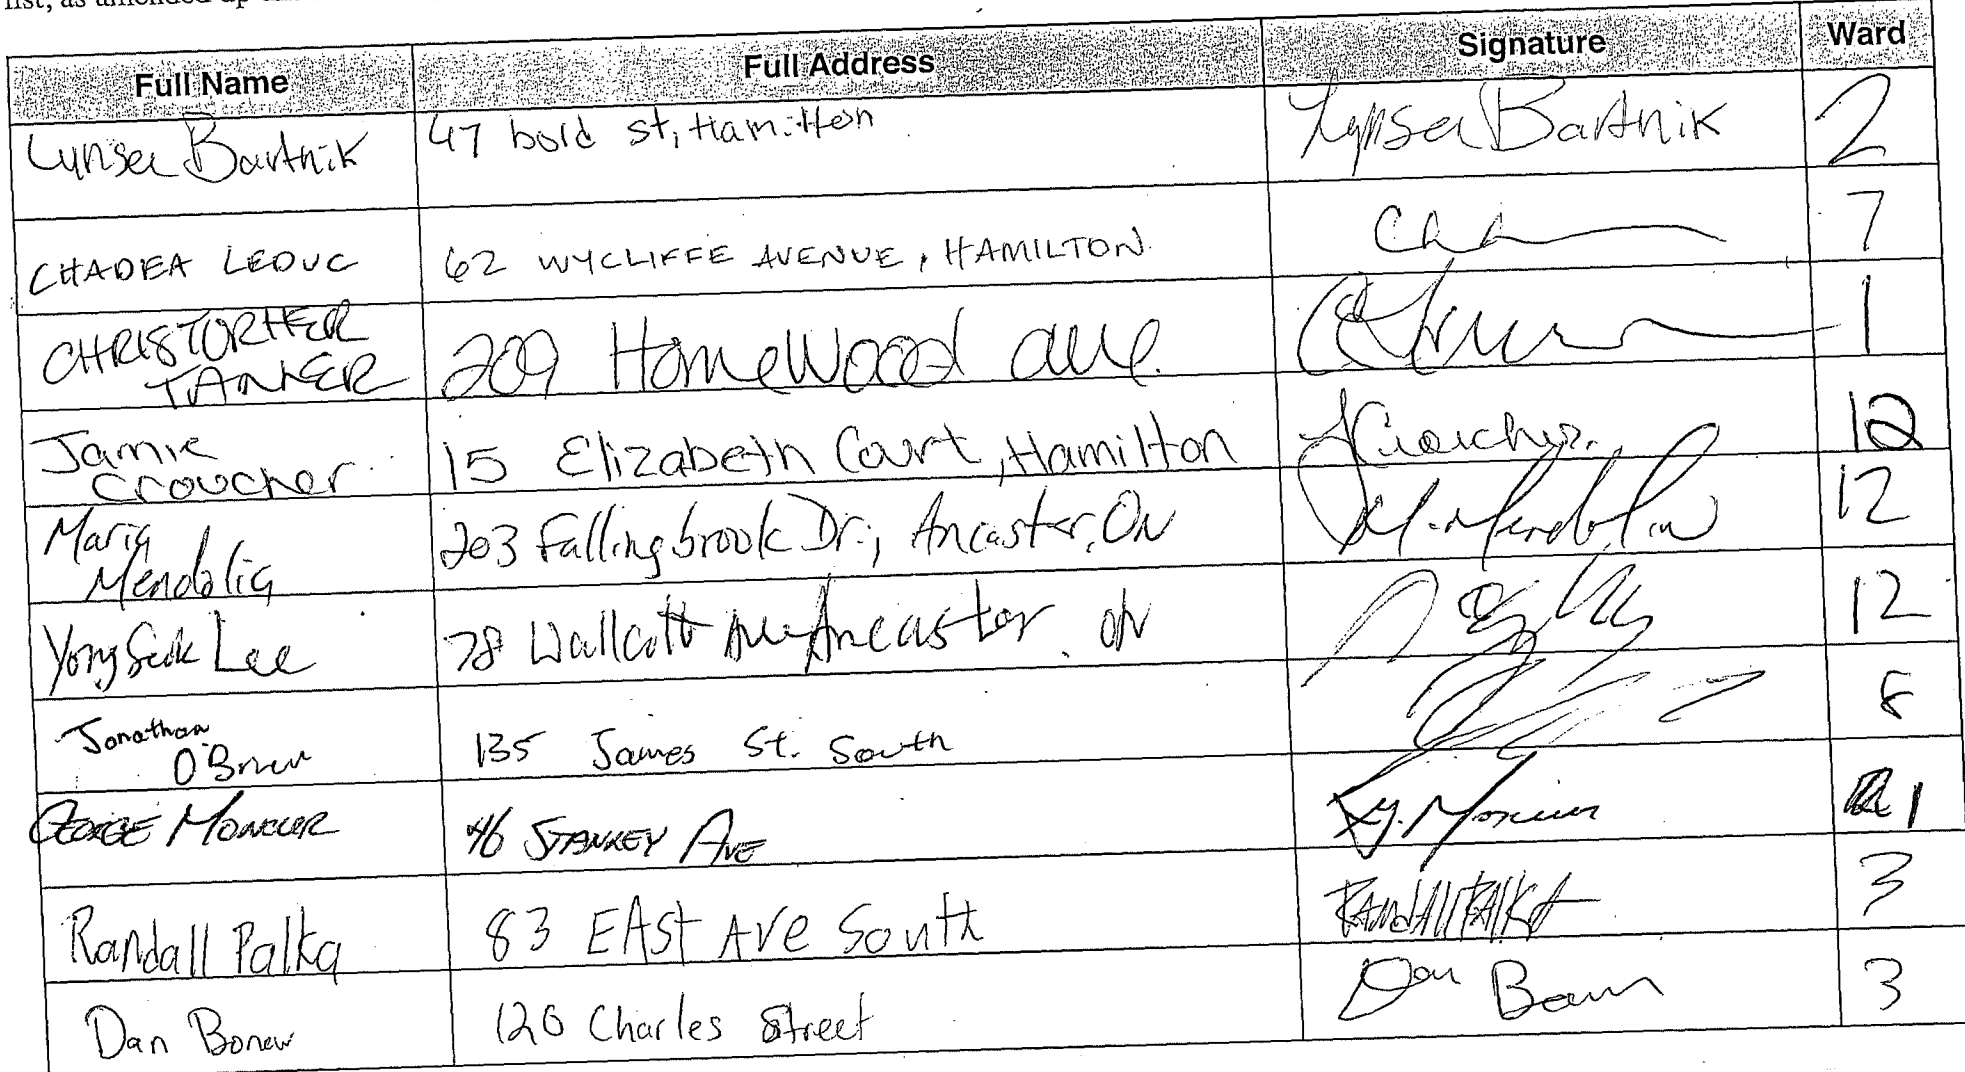 list, as amended up
Full Name Full Address Signature Ward
Lynsea Bartnik 47 bold st, Hamilton Lynsea Bartnik 2
CHADEA LEDUC 62 WYCLIFFE AVENUE, HAMILTON 7
CHRISTOPHER
TANNER 209 Homewood ave. 1
Jamie
Croucher 15 Elizabeth Court, Hamilton JCroucher 12
Maria
Mendolia 203 Fallingbrook Dr., Ancaster, On M. Mendolia 12
Yong Seok Lee 78 Wallcott Ave Ancaster. ON 12
Jonathan
O'Brien 135 James St. South
GEORGE MONCUR 46 STANLEY AVE G. Moncur 1
Randall Palka 83 EAST AVE South RANDALL PALKA 3
Dan 120 Charles Street Dan 3